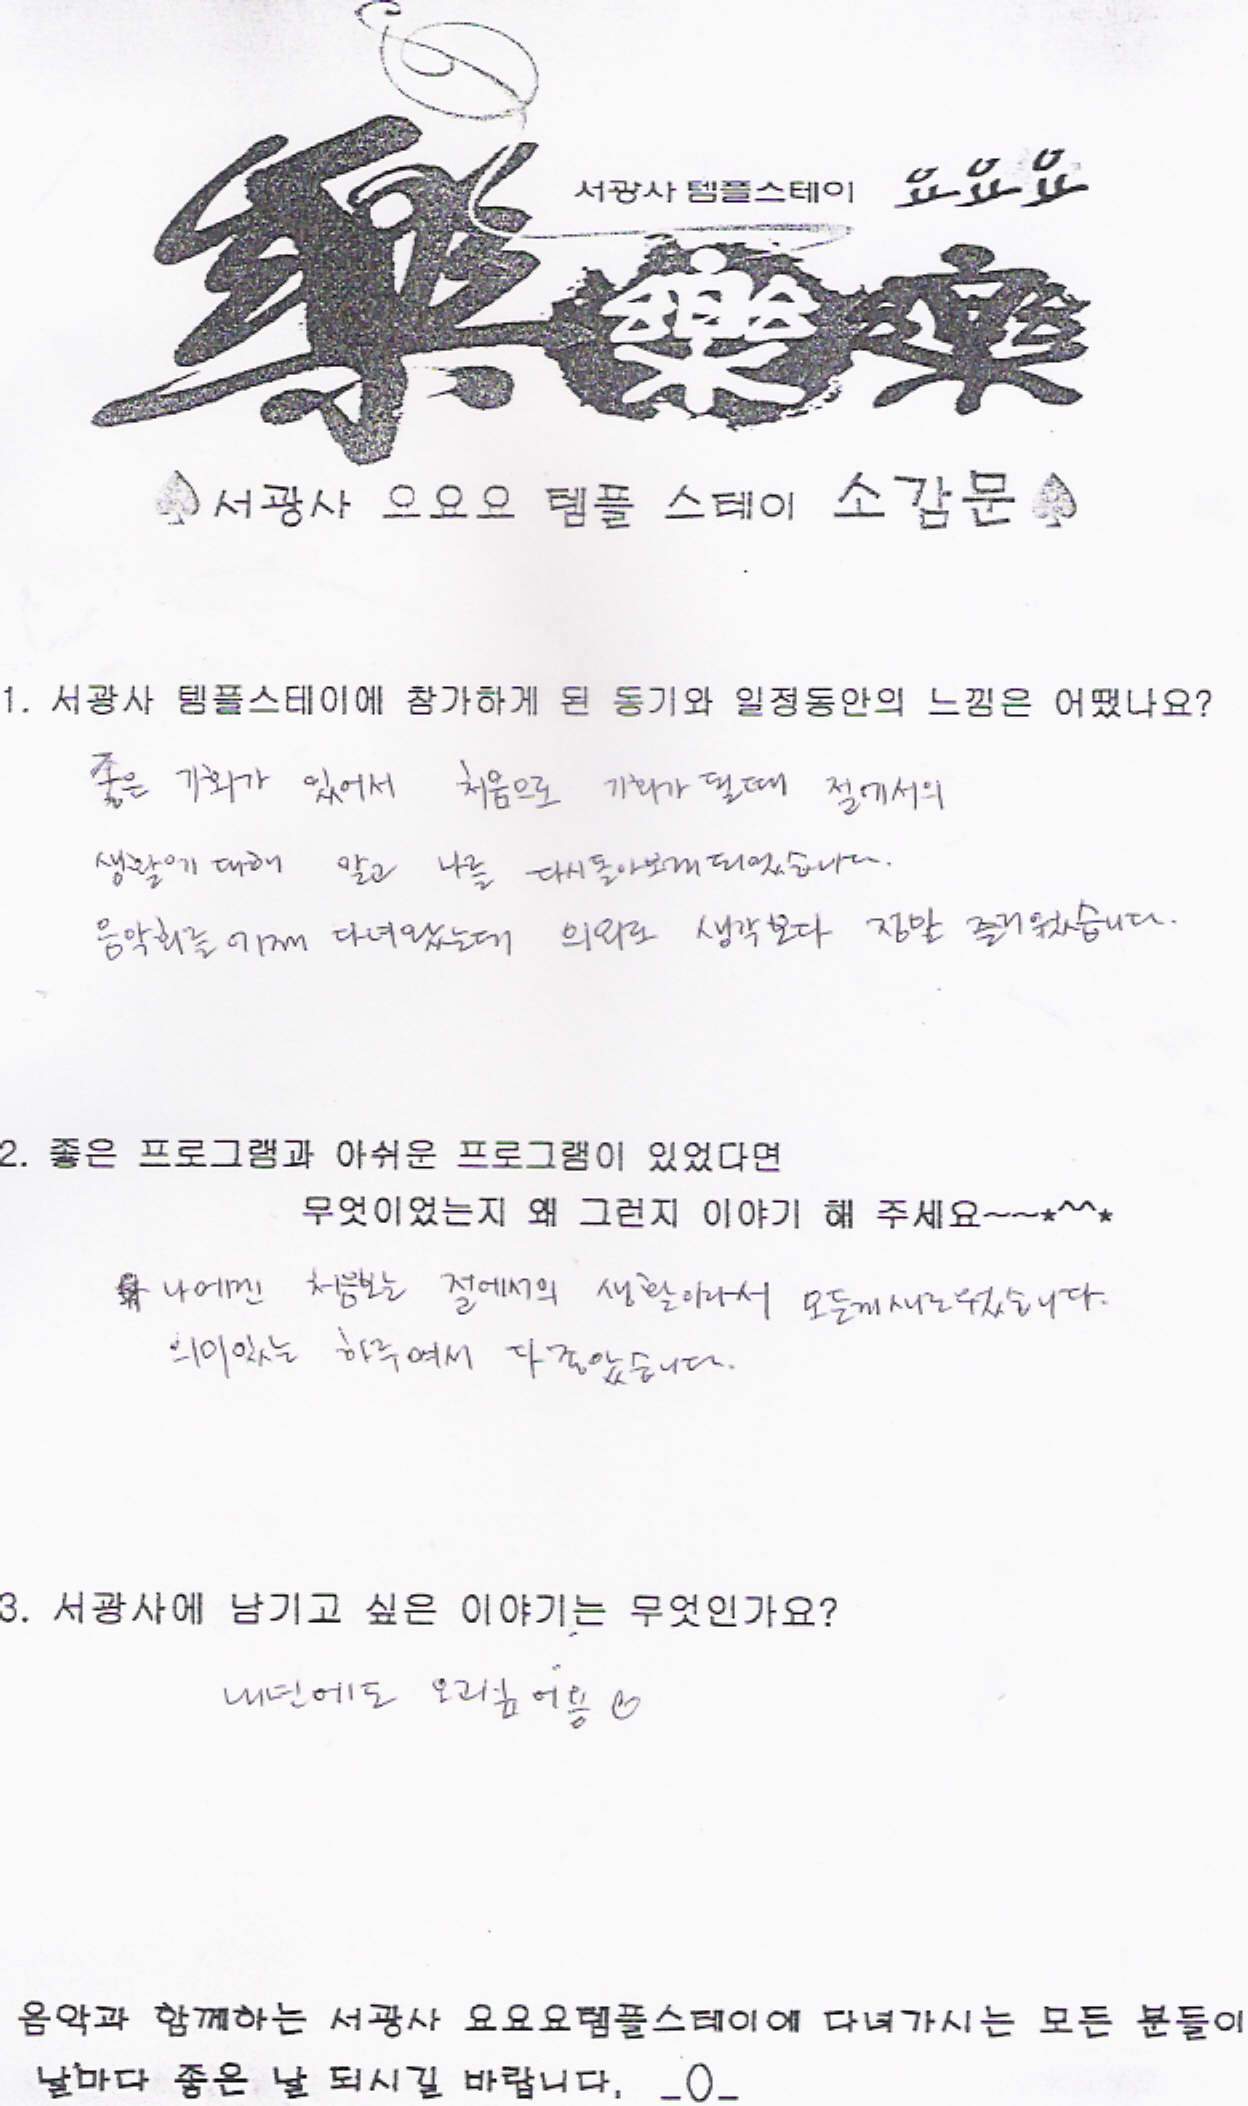 서광사 템플스테이 요요요
樂 樂 樂
서광사 요요요 템플 스테이 소감문
1. 서광사 템플스테이에 참가하게 된 동기와 일정동안의 느낌은 어땠나요?
좋은 기회가 있어서 처음으로 기회가 될때 절에서의
생활에 대해 알고 나를 다시돌아보게 되었습니다.
음악회를 어제 다녀왔는데 의외로 생각보다 정말 즐거웠습니다.
2. 좋은 프로그램과 아쉬운 프로그램이 있었다면
무엇이었는지 왜 그런지 이야기 해 주세요~~*^^*
나에겐 처음보는 절에서의 생활이라서 모든게 새로웠습니다.
의미있는 하루여서 다 좋았습니다.
3. 서광사에 남기고 싶은 이야기는 무엇인가요?
내년에도 오고싶어용
음악과 함께하는 서광사 요요요템플스테이에 다녀가시는 모든 분들이
날마다 좋은 날 되시길 바랍니다. _0_